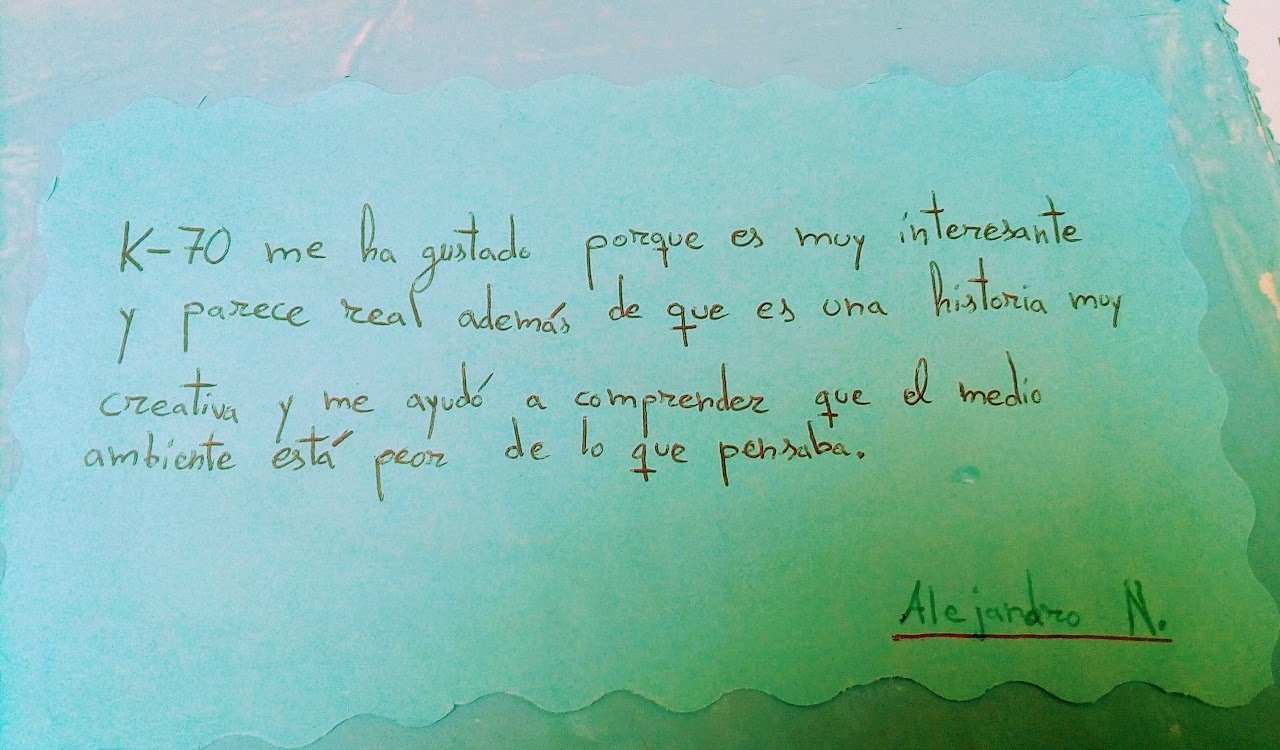 K-70 me ha gustado porque es muy interesante
y parece real además de que es una historia muy
creativa y me ayudó a comprender que el medio
ambiente está peor de lo que pensaba.
Alejandro N.